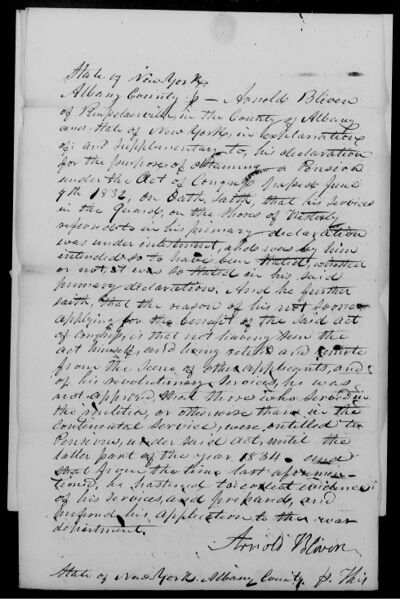 State of New York
Albany County ss – Arnold Bliven
of Rensselaerville, in the County of Albany
and State of New York, in explanation
of, and supplementary to, his declaration
for the purpose of obtaining a Pension
under the Act of Congress passed June
7th 1832, on Oath, saith, that his services
in the Guard, on the Shores of Westerly
referred to in his primary declaration
was under intestment, and was by him
intended so to have been stated, whether
or not it was so stated in his said
primary declaration. And he further
saith, that the reason of his not sooner
applying for the benefit of the said act
of Congress, is that not having seen the
act himself, and living retired and remote
from the scene of other applicants, and
of his revolutionary services, he was
not apprised that those who served in
the militia, or otherwise than in the
Continental Service, were entitled to
Pensions, under said Act, until the
latter part of the year 1834. and
that from the time last aforemen-
tioned, he hastened to collect evidence
of his services, and prepare, and
his application to the war
department.
Arnold Bliven
State of New York Albany County ss. This